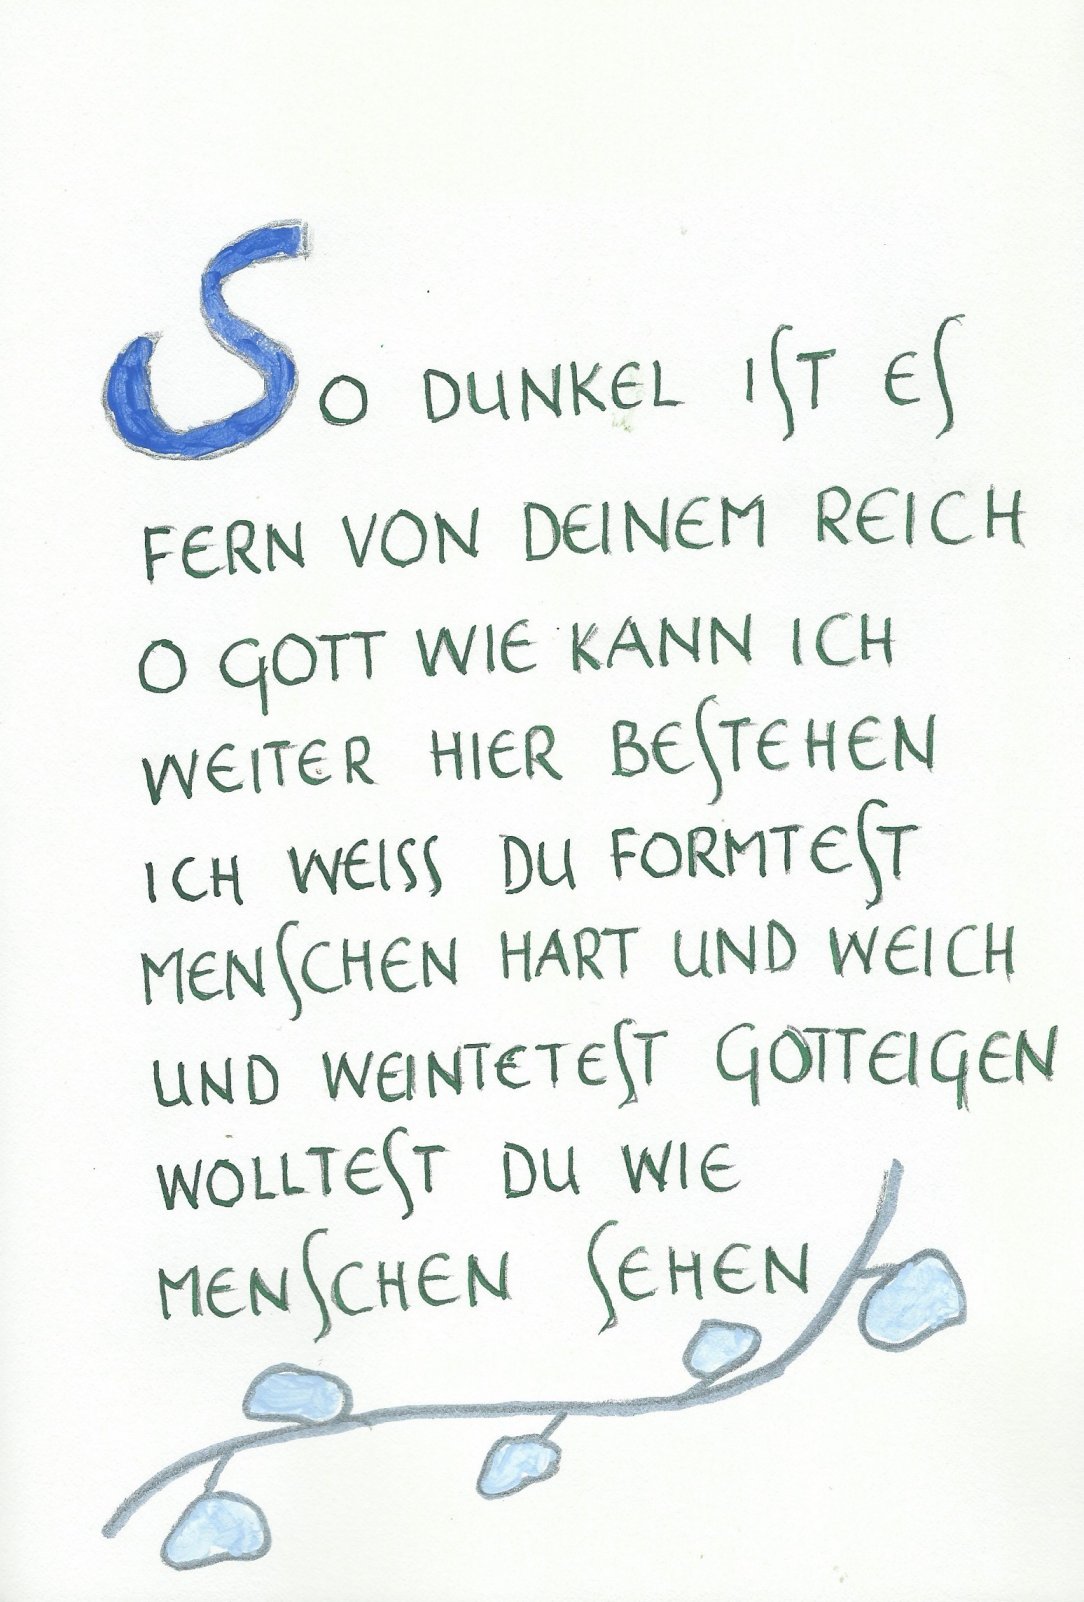 SO DUNKEL IST ES
FERN VON DEINEM REICH
O GOTT WIE KANN ICH
WEITER HIER BESTEHEN
ICH WEISS DU FORMTEST
MENSCHEN HART UND WEICH
UND WEINTETEST GOTTEIGEN
WOLLTEST DU WIE
MENSCHEN SEHEN